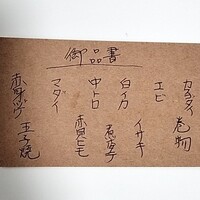 御品書
エビ
白イカ
中トロ
マダイ
赤身漬ケ
巻物
イサキ
煮穴子
赤貝ヒモ
玉子焼